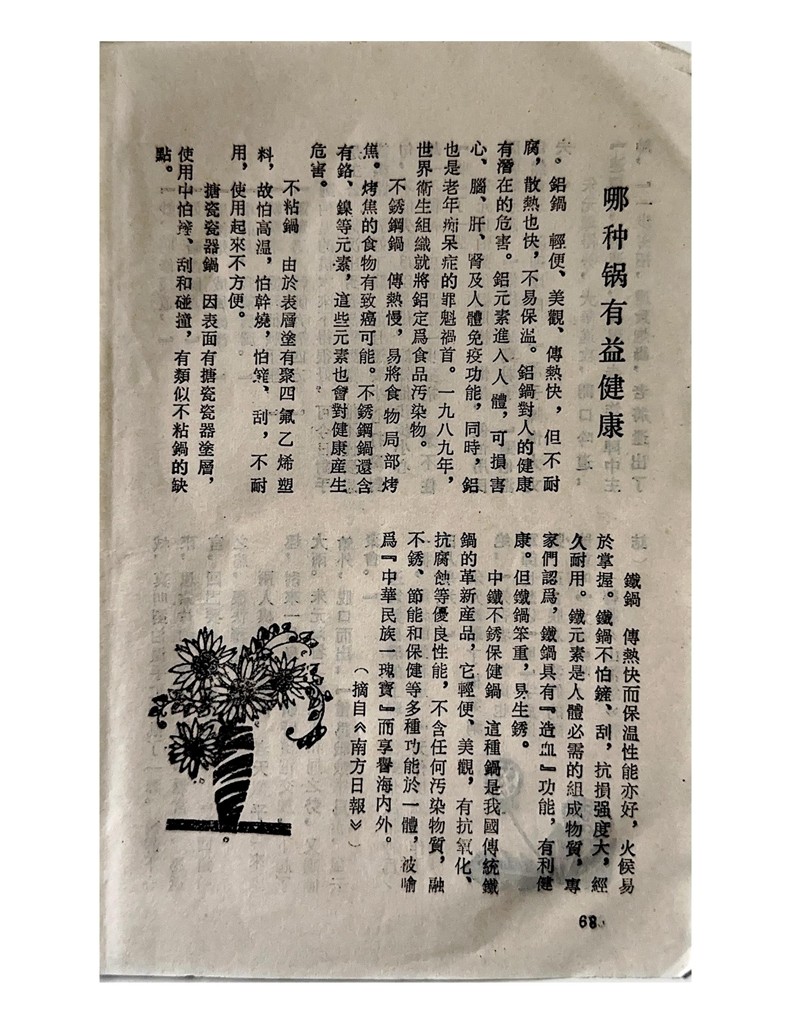 哪种锅有益健康
鋁鍋 輕便、美觀、傳熱快，但不耐
腐，散熱也快，不易保溫。鋁鍋對人的健康
有潛在的危害。鋁元素進入人體，可損害
心、腦、肝、腎及人體免疫功能，同時，鋁
也是老年痴呆症的罪魁禍首。一九八九年，
世界衛生組織就將鋁定爲食品汚染物。
不銹鋼鍋 傳熱慢，易將食物局部烤
焦。烤焦的食物有致癌可能。不銹鋼鍋還含
有鉻、鎳等元素，這些元素也會對健康産生
危害。
不粘鍋 由於表層塗有聚四氟乙烯塑
料，故怕高温，怕幹燒，怕鏟、刮，不耐
用，使用起來不方便。
搪瓷瓷器鍋 因表面有搪瓷瓷器塗層，
使用中怕鏟、刮和碰撞，有類似不粘鍋的缺
點。
鐵鍋 傳熱快而保温性能亦好，火候易
於掌握。鐵鍋不怕鏟、刮，抗損强度大，經
久耐用。鐵元素是人體必需的組成物質，專
家們認爲，鐵鍋具有『造血』功能，有利健
康。但鐵鍋笨重，易生銹。
中鐵不銹保健鍋 這種鍋是我國傳統鐵
鍋的革新産品，它輕便、美觀，有抗氧化、
抗腐蝕等優良性能，不含任何汚染物質，融
不銹、節能和保健等多種功能於一體，被喻
爲『中華民族一瑰寶』而享譽海内外。
（摘自《南方日報》）
68